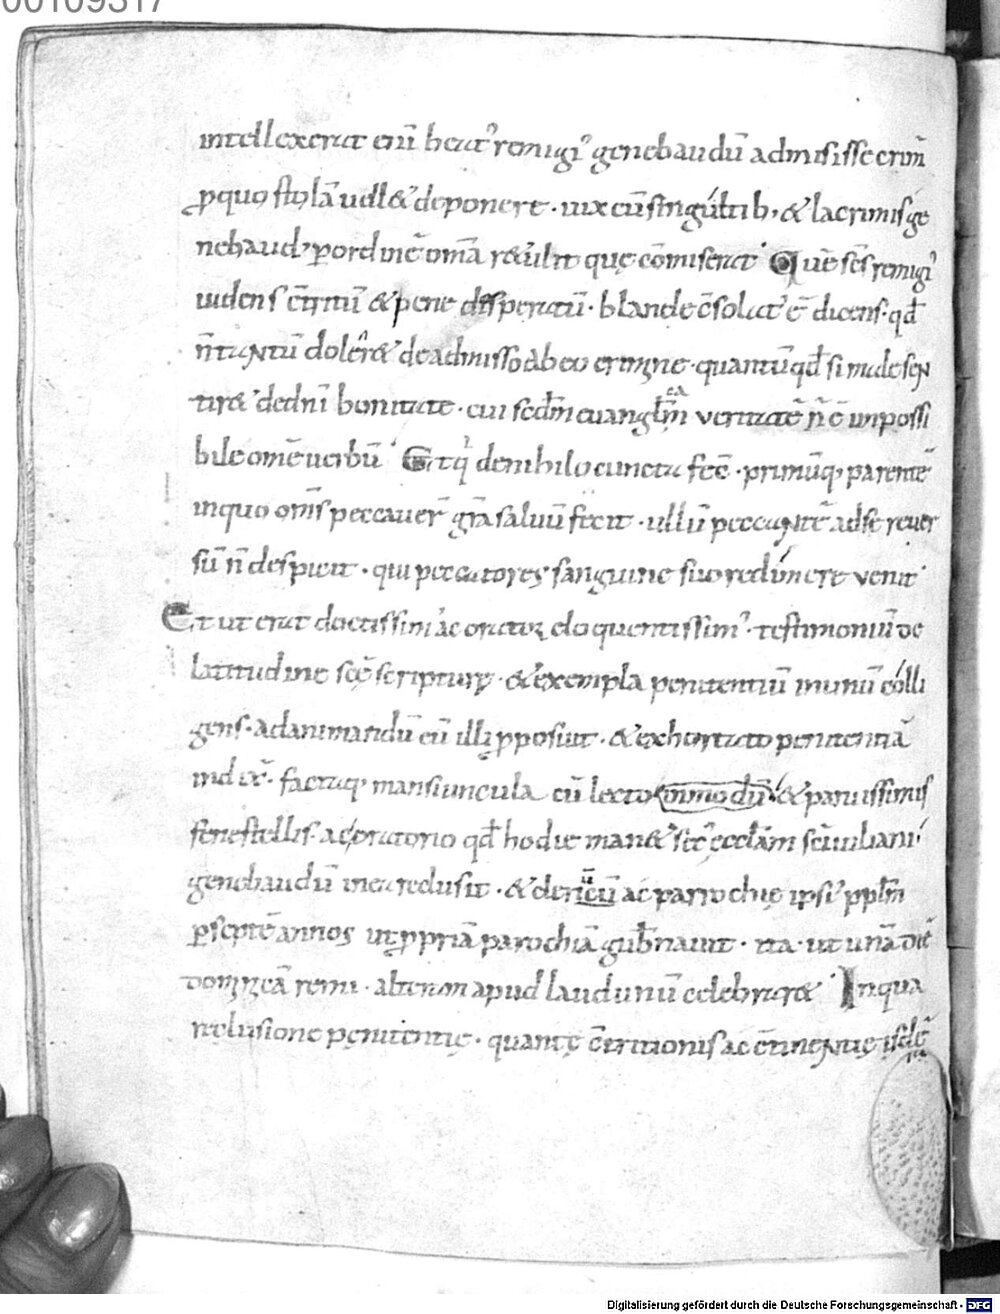 00109317
intellexerat eni᷄ beat᾽ remigi᾽ genebaudū admisisse crim̄
ꝓquo stolā uell& deponere · uix cū singultib; & lacrimis ge
nebaud᾽ ꝑordinē om̄a retulit quę cōmiserat Quē sc̄s remigi᾽
uidens c̄tritū & pene desperatū · blande c̄solat᾽ ē dicens · qđ
n̄ tantū doler& de admisso ab eo crimine · quantū qđ si male sen
tir& de dn̄i bonitate · cui scdm̄ euanglm̄ ueritatē n̄ ē inpossi
bile om̄e uerbū Et q̇ de nihilo cuncta fec̄ · primūq; parentē
in quo om̄s peccauer̄ gr̄a saluū fecit · ullū peccantē ad se reuer
sū n̄ despicit · qui peccatores sanguine suo redimere uenit
Et ut erat doctissim᾽ ac oratoꝝ eloquentissim᾽ · testimoniū de
latitudine scę scripturę · & exempla penitentiū in unū colli
gens · ad animandū eū illi ꝓposuit · & exhortato penitentiā
indix̄ · factaq; mansiuncula cū lecto in modū & paruissimis
fenestellis · ac oratorio qđ hodie man& sec᾽ ecclām sc̄i iuliani ·
genebaudū inea reclusit · & clericū ac parrochię ipsi᾽ pplm̄
ꝑ septē annos ut ꝓpriā parochiā gub̄nauit · ita · ut unā diē
dominicā remi · alteram apud laudunū celebrar& In qua
reclusione penitentię · quantę c̄tritionis ac c̄tinentię isdē
Digitalisierung gefördert durch die Deutsche Forschungsgemeinschaft - DFG